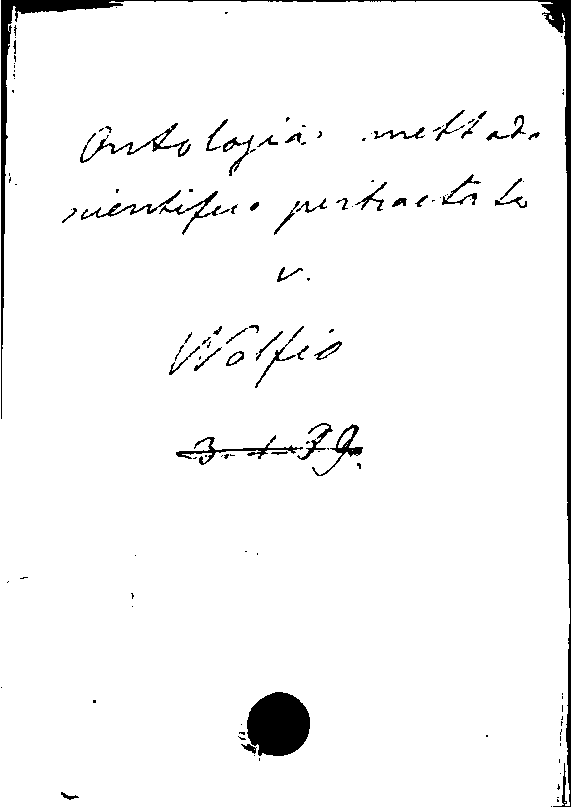 Ontologia methodo
scientifica pertractata
v.
Wolfio
3. 1. 39.